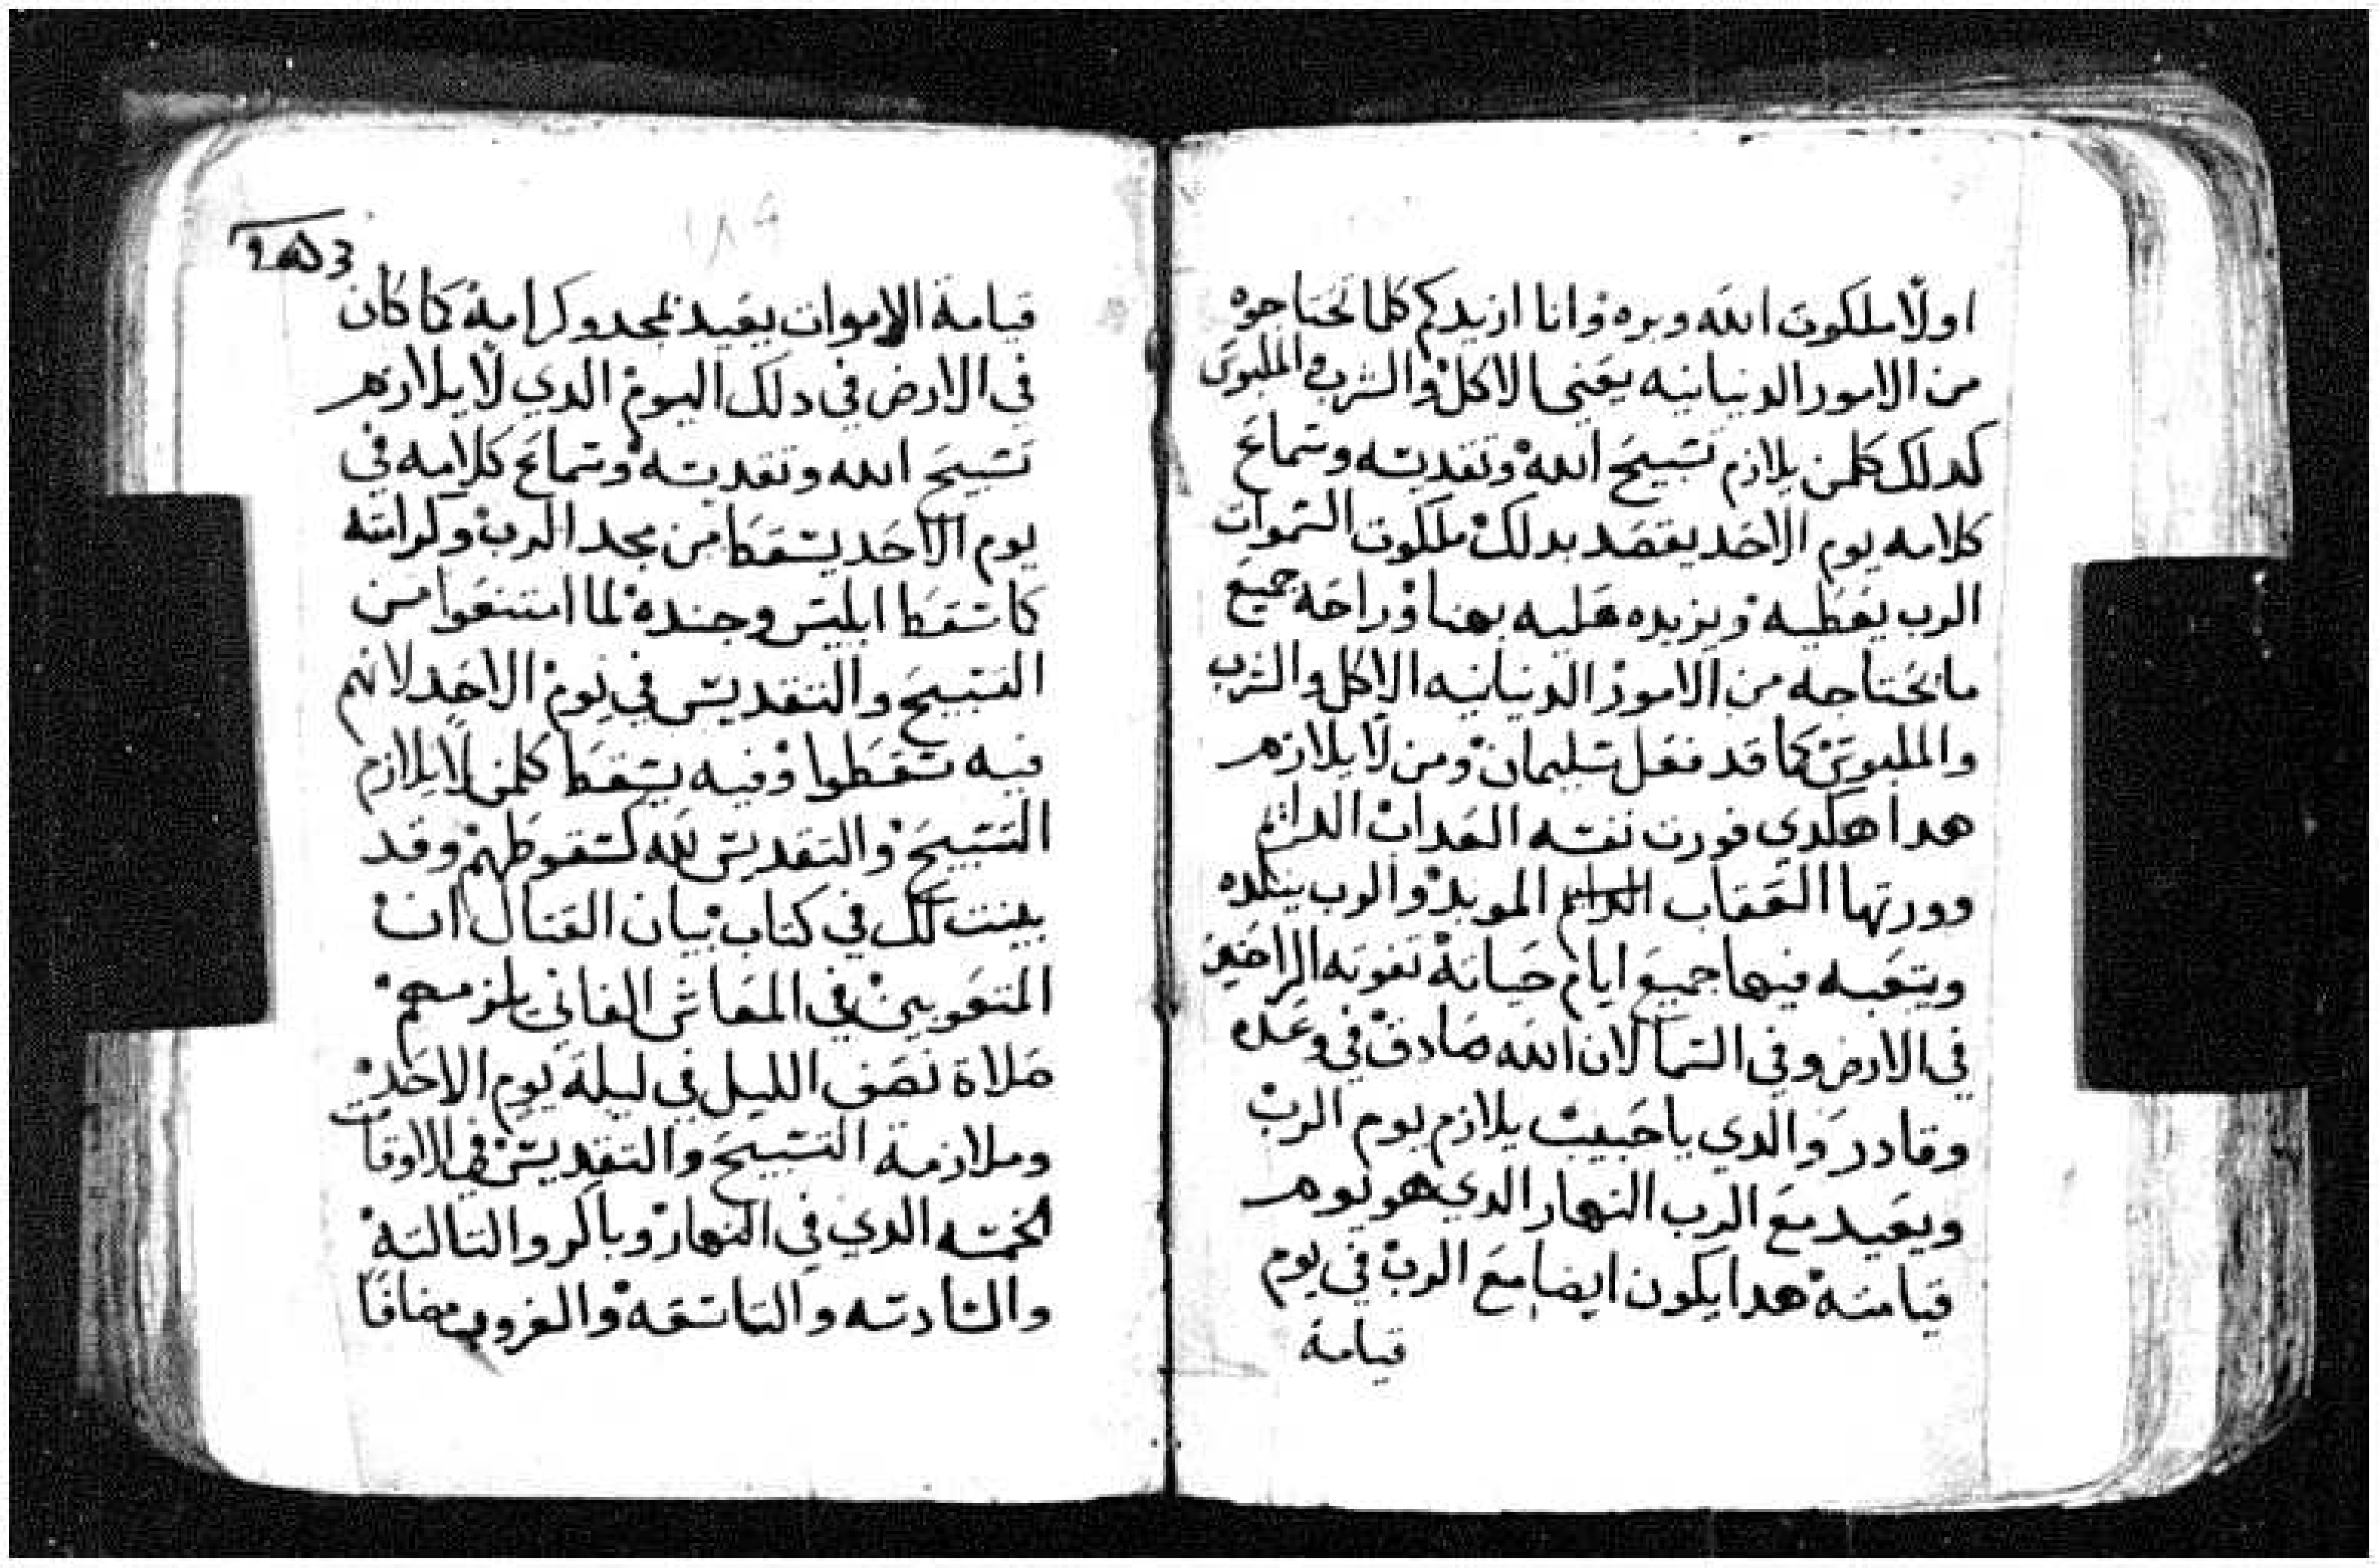 اولا ملكوت الله وبره وانا ازيدكم كلما تحتاجوه
من الامور الدنيانيه يعني الاكل والشرب والملبوس
كدلك كلمن يلازم تسبيح الله وتقديسه وسماع
كلامه يوم الاحد يقصد بدلك ملكوت السموات
الرب يعطيه ويزيده عليه بهنا وراحه جميع
ما يحتاجه من الامور الدنيانيه الاكل والشرب
والملبوس كما قد فعل سليمان ومن لا يلازم
هدا هكدي فورت نفسه العداب الدايم
وورتها العقاب الموبد والرب ينكده
ويتعبه فيها جميع ايام حياته تفوته الراحتين
في الارض وفي السما لان الله صادق في وعده
وقادر والدي يا حبيب يلازم يوم الرب
ويعيد مع الرب النهار الدي هو يوم
قيامته هدا يكون ايضا مع الرب في يوم
قيامة
١٨٩
قيامة الاموات يعيد بمجد وكرامة كما كان
في الارض في دلك اليوم الدي لا يلازم
تسبيح الله وتقديسه وسماع كلامه في
يوم الاحد يسقط من مجد الرب وكرامته
كما سقط ابليس وجنده لما امتنعوا من
التسبيح والتقديس في يوم الاحد لانهم
فيه سقطوا وفيه يسقط كلمن لا يلازم
التسبيح والتقديس لله كسقوطهم وقد
بينت لك في كتاب بيان القتال ان
المتعوبين في المعاش الفاني يلزمهم
صلاة نصف الليل في ليلة يوم الاحد
وملازمة التسبيح والتقديس في الاوقات
الخمسه الدي في النهار وباكر والتالتة
والسادسه والتاسعة والغروب مضافا